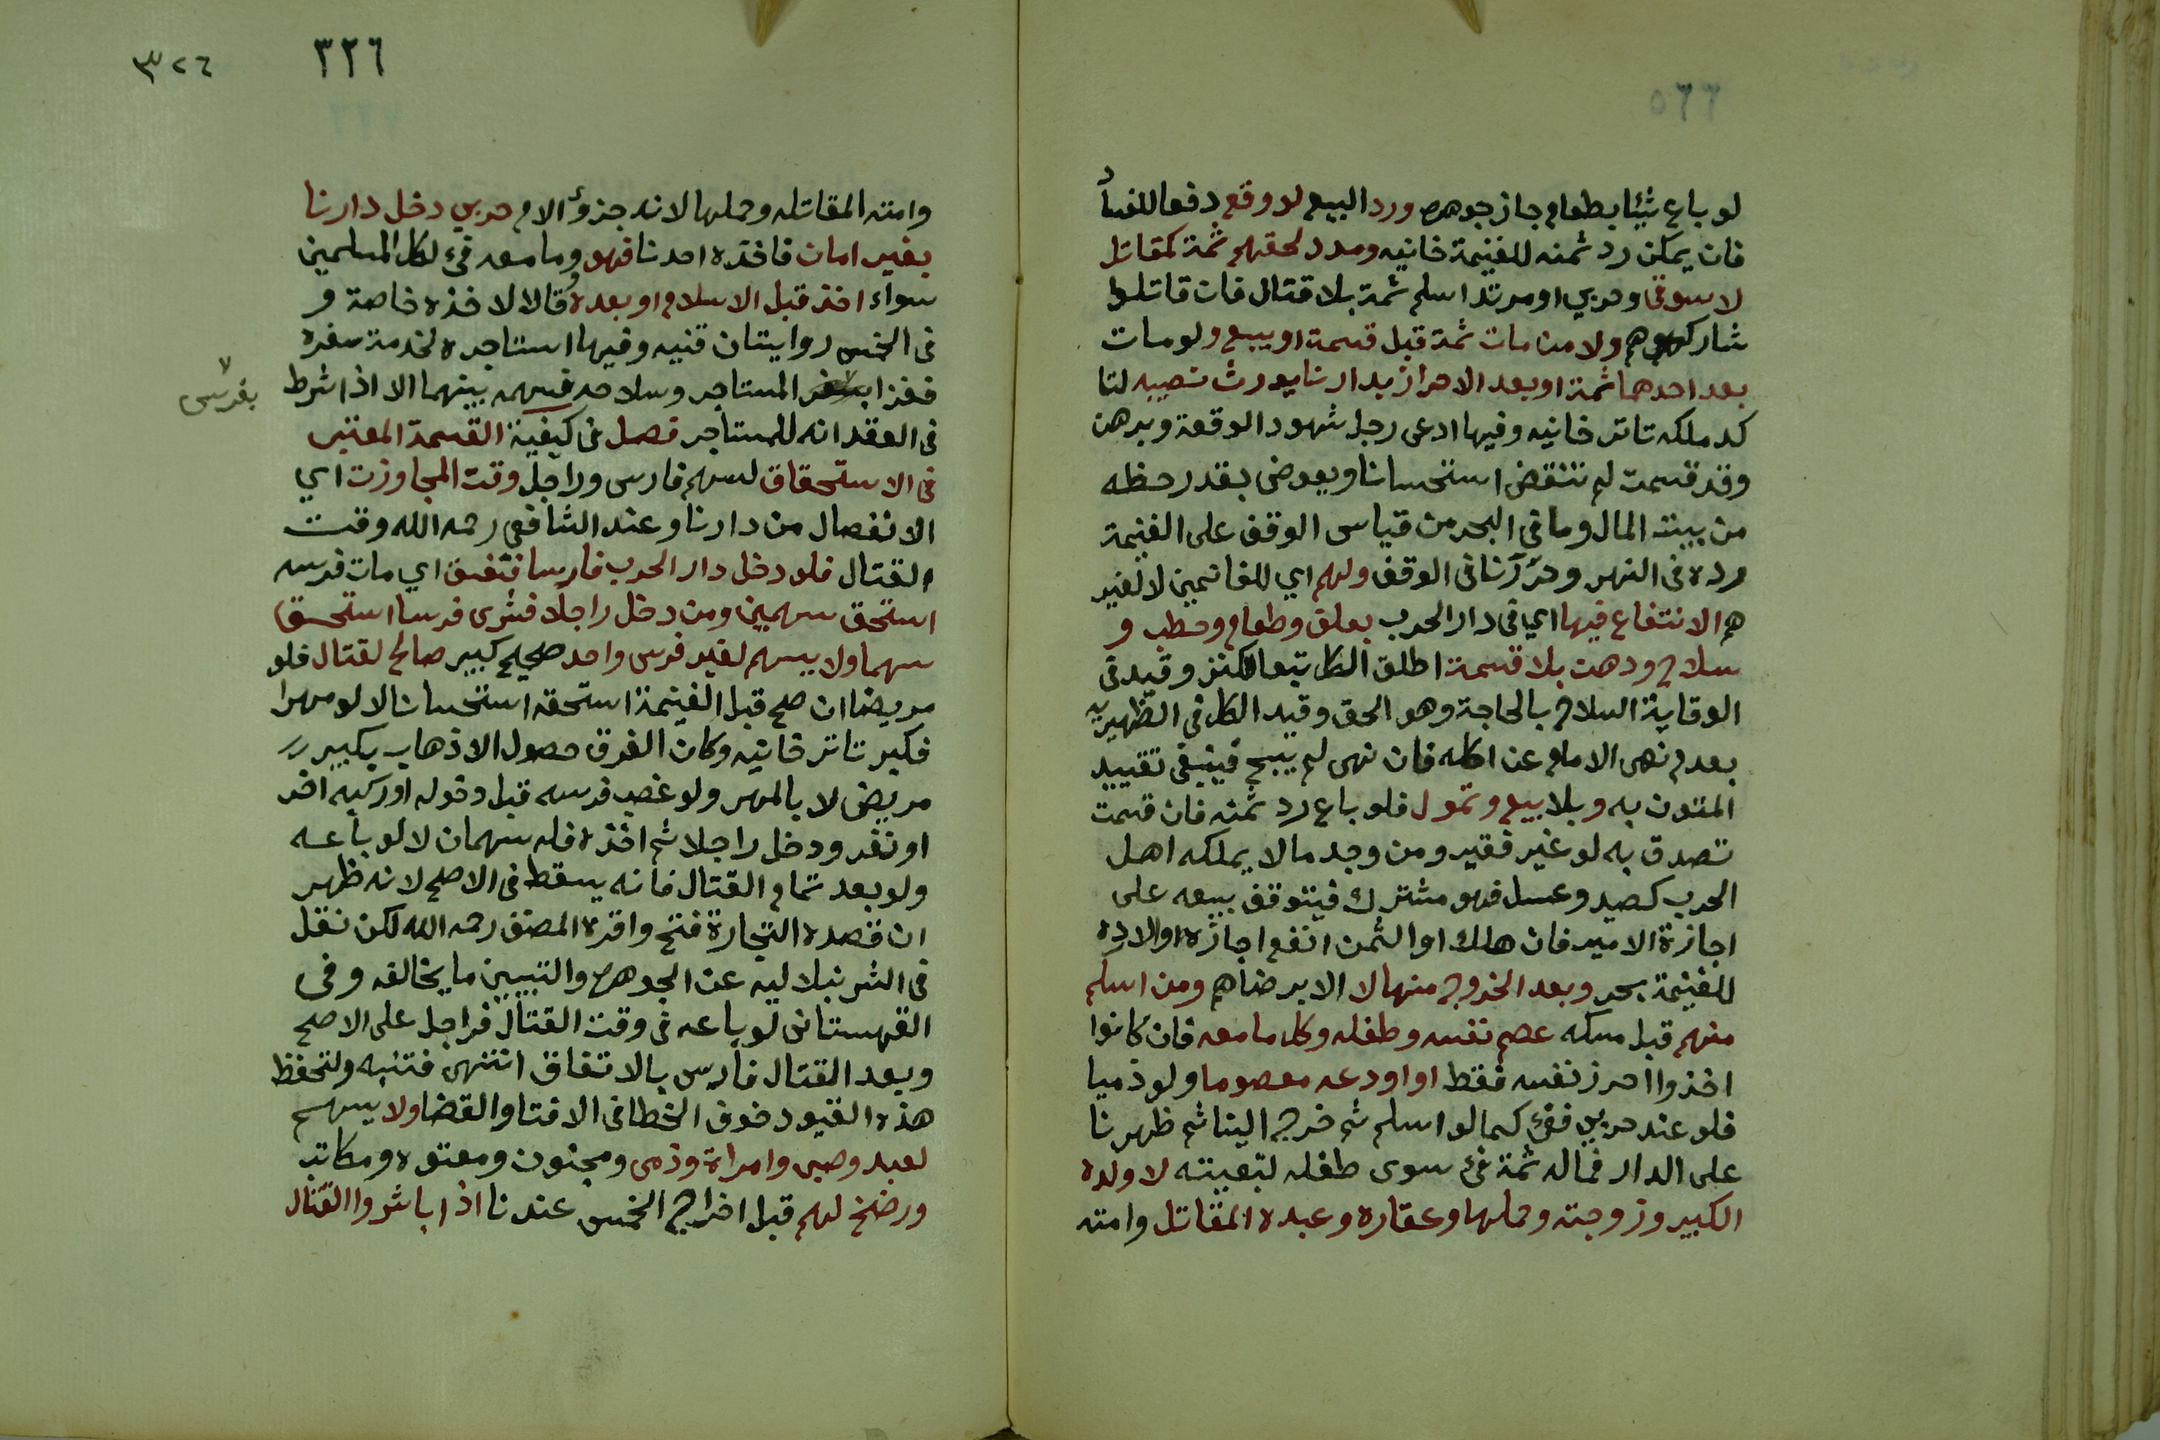 لو باع شيئا بطعام جاز جوهره ورد البيع لو وقع دفعا للفساد
فان يمكن رد ثمنه للغنيمة خانيه ومدد لحقهم ثمة كمقاتل
لا سوقى وحربي او مرتد اسلم ثمة بلا قتال فان قاتلوا
شاركوهم ولا من مات ثمة قبل قسمة او بيع ولو مات
بعد احدهما ثمة او بعد الاحراز بدارنا يورث نصيبه لتا
كد ملكه تاتر خانيه وفيها ادعى رجل شهود الوقعة وبرهن
وقد قسمت لم تنقض استحسانا ويعوض بقدر حظه
من بيت المال وما في البحر من قياس الوقف على الغنيمة
رده فى النهر وحررنا فى الوقف ولهم اي للغانمين لا لغير
هم الانتفاع فيها اي فى دار الحرب بعلف وطعام وحطب و
سلاح ودهن بلا قسمة اطلق الكل تبعا للكنز وقيد فى
الوقاية السلاح بالحاجة وهو الحق وقيد الكل فى الظهيريه
بعدم نهى الامام عن اكله فان نهى لم يبح فينبغى تقييد
المتون به وبلا بيع وتمول فلو باع رد ثمنه فان قسمت
تصدق به لو غير فقير ومن وجد ما لا يملكه اهل
الحرب كصيد وعسل فهو مشترك فيتوقف بيعه على
اجازة الامير فان هلك او الثمن انفع اجازه والا رده
للغنيمة بحر وبعد الخروج منها لا الا برضاهم ومن اسلم
منهم قبل مسكه عصم نفسه وطفله وكل ما معه فان كانوا
اخذوا احرز نفسه فقط او اودعه معصوما ولو ذميا
فلو عند حربي ففئ كما لو اسلم ثم خرج الينا ثم ظهرنا
على الدار فماله ثمة فئ سوى طفله لتبعيته لا ولده
الكبير وزوجته وحملها وعقاره وعبده المقاتل وامته
٣٢٦
٣٢٦
وامته المقاتله وحملها لانه جزؤ الام حربي دخل دارنا
بغير امان فاخذه احدنا فهو وما معه فئ لكل المسلمين
سواء اخذ قبل الاسلام او بعده وقالا لاخذه خاصة و
فى الخمس روايتان قنيه وفيها استاجره لخدمة سفره
فغزا المستاجر وسلاحه فسهمه بينهما الا اذا شرط
بفرس
فى العقد انه للمستأجر فصل فى كيفية القسمة المعتبر
فى الاستحقاق لسهم فارس وراجل وقت المجاوزت اي
الانفصال من دارنا وعند الشافعى رحمه الله وقت
القتال فلو دخل دار الحرب فارسا فنفق اي مات فرسه
استحق سهمين ومن دخل راجلا فشرى فرسا استحق
سهما ولا يسهم لغير فرس واحد صحيح كبير صالح لقتال فلو
مريضا ان صح قبل الغنيمة استحقه استحسانا لا لو مهرا
فكبر تاتر خانيه وكان الفرق حصول الارهاب بكبير
مريض لا بالمهر ولو غصب فرسه قبل دخوله او ركبه اخر
او نفر ودخل راجلا ثم اخذه فله سهمان لا لو باعه
ولو بعد تمام القتال فانه يسقط فى الاصح لانه ظهر
ان قصده التجارة فتح واقره المصنف رحمه الله لكن نقل
فى الشرنبلاليه عن الجوهره والتبيين ما يخالفه وفى
القهستانى لو باعه فى وقت القتال فراجل على الاصح
وبعد القتال فارس بالاتفاق انتهى فتنبه ولتحفظ
هذه القيود خوف الخطا فى الافتا والقضا ولا يسهم
لعبد وصبى وامراة وذمى ومجنون ومعتوه ومكاتب
ورضخ لهم قبل اخراج الخمس عندنا اذا باشروا القتال